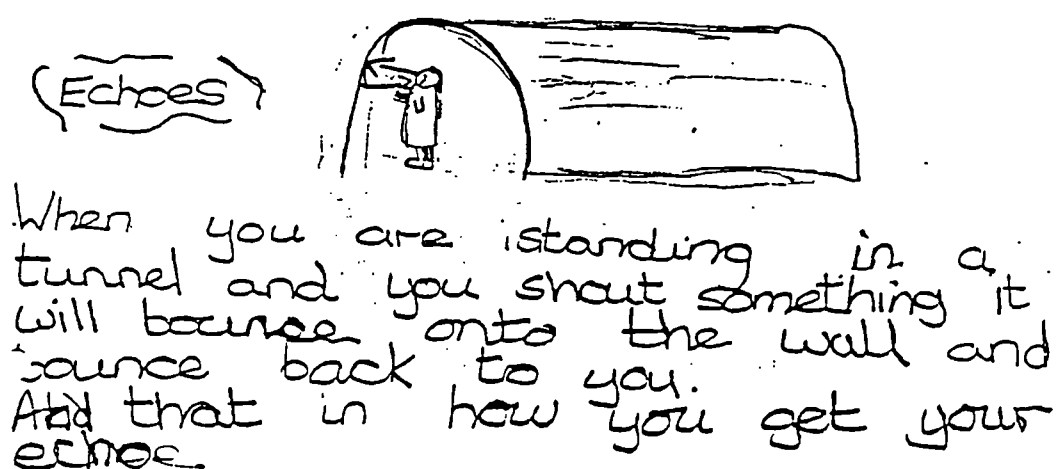 Echoes
When you are standing in a
tunnel and you shout something it
will bounce onto the wall and
bounce back to you.
And that in how you get your
echoe.